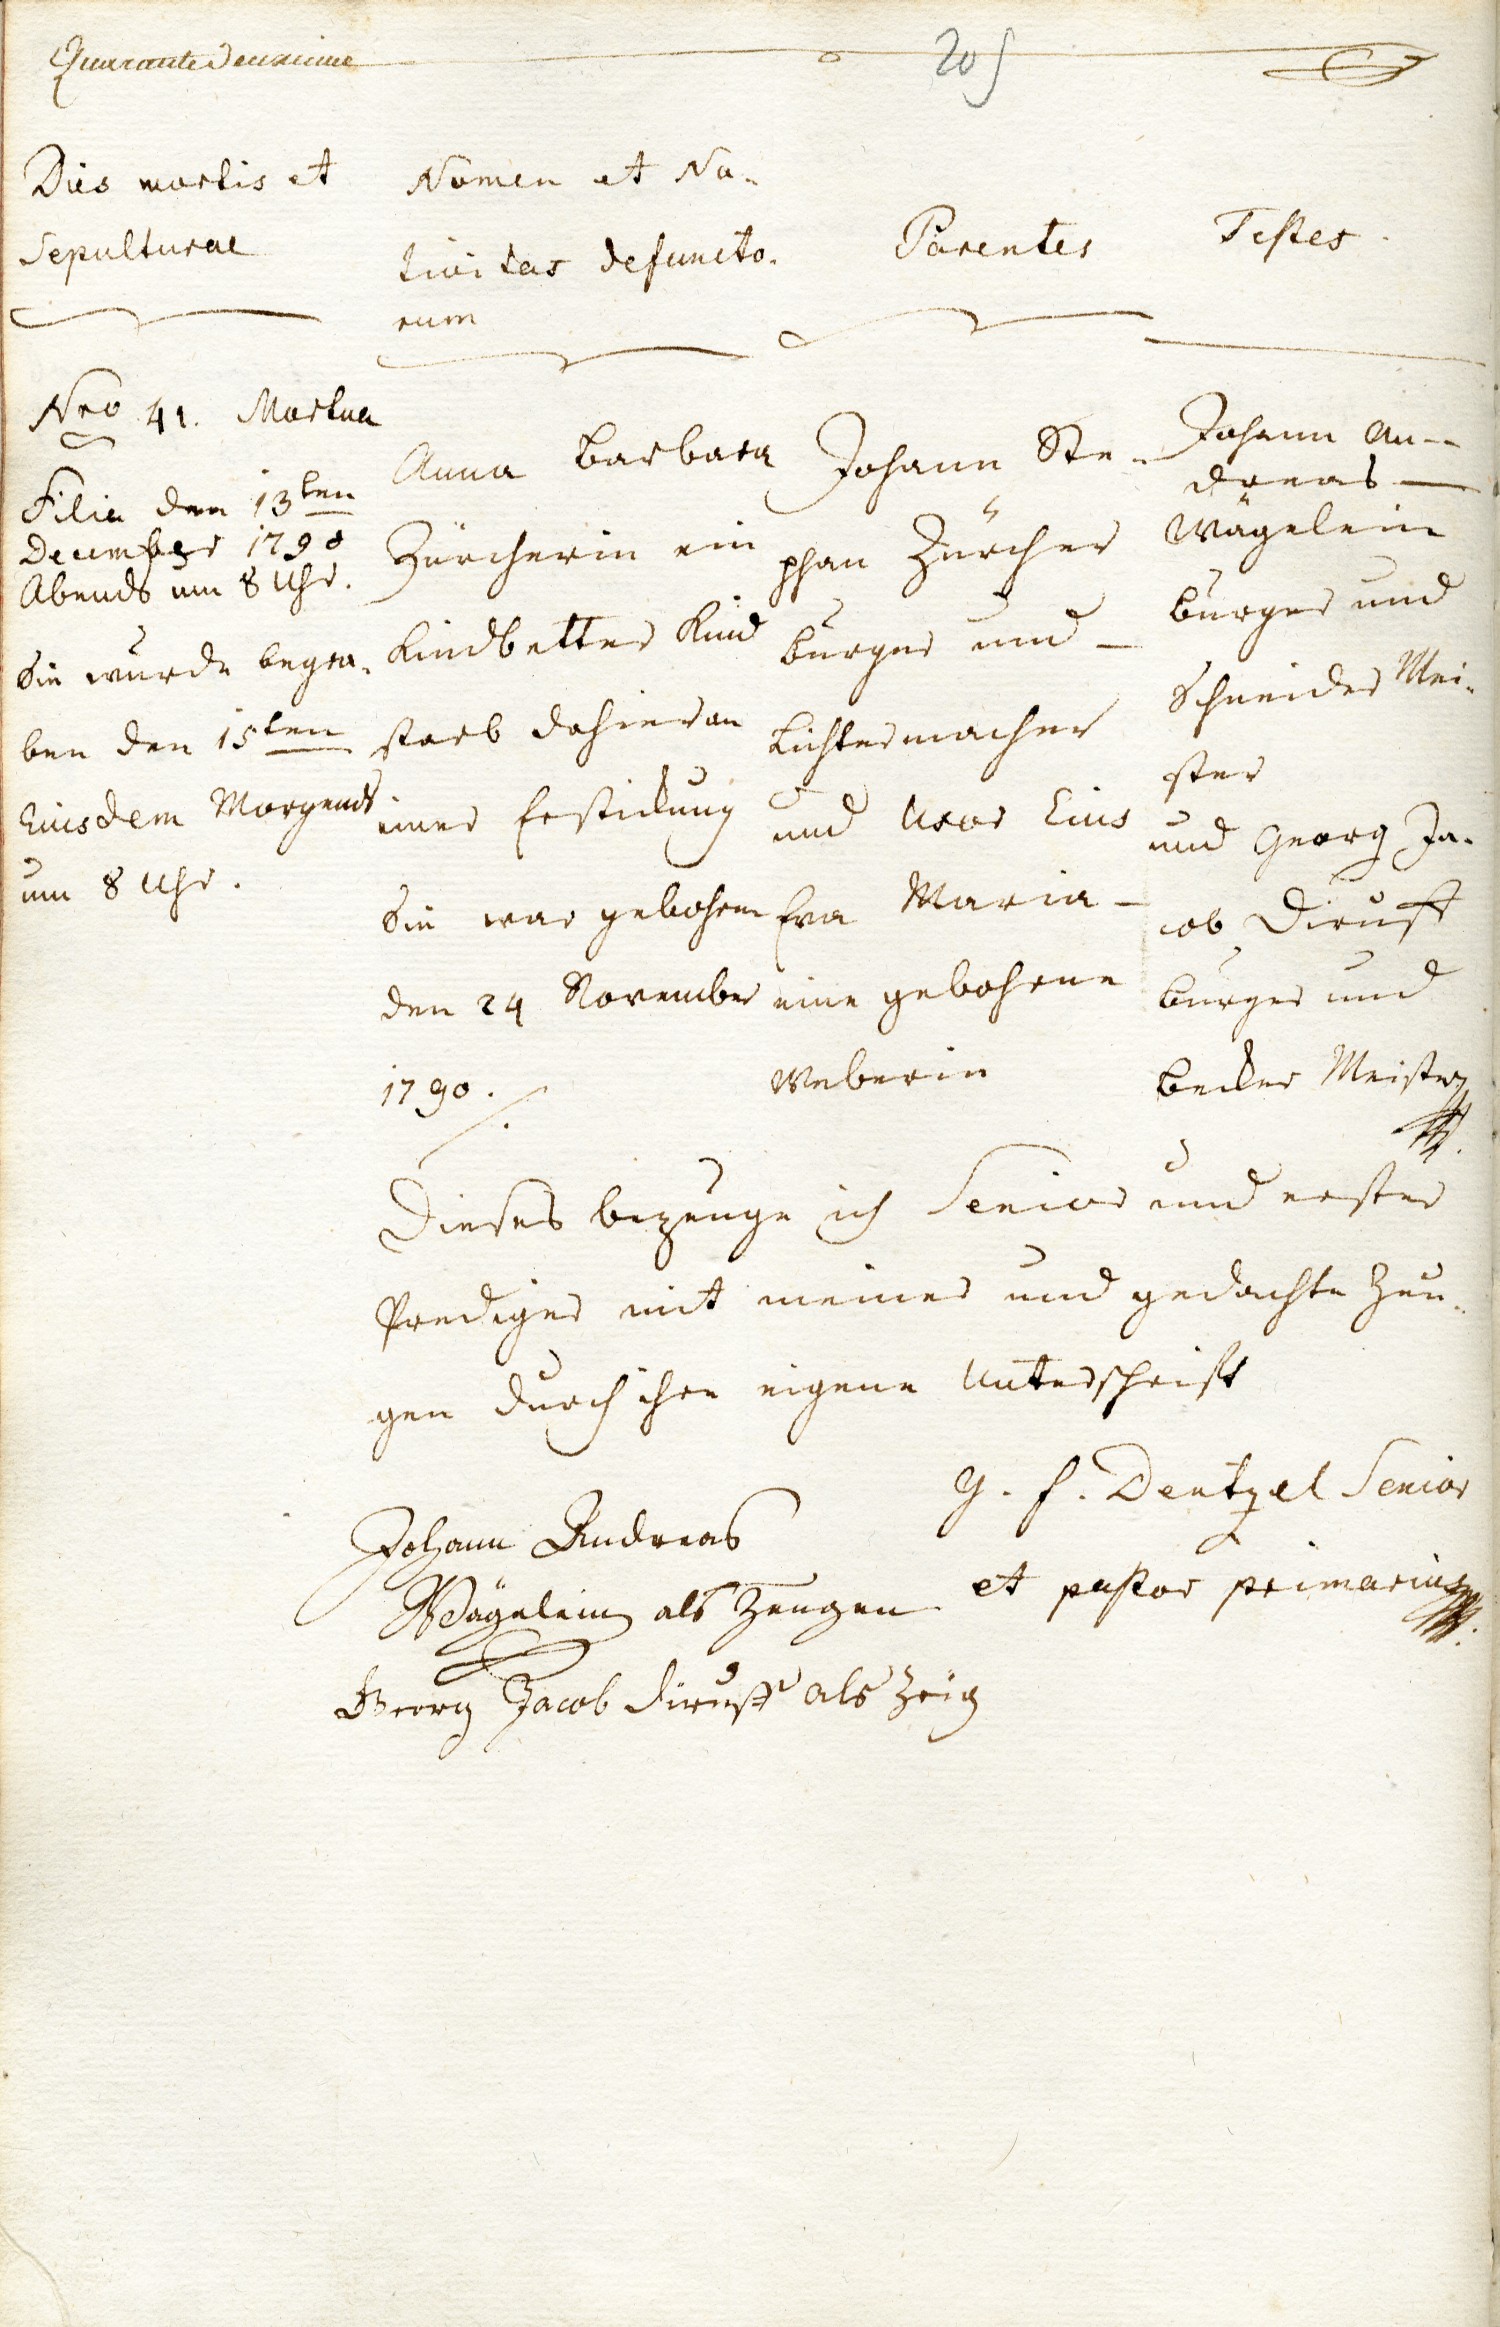 Quarante Deuxieme
205
Dies mortis et
Sepulturae
Nomen et Na-
tivitas defuncto-
rum
Parentes
Testes
Nro 41. Mortua
Filia den 13ten
December 1790
Abends um 8 Uhr.
Sie wurde begra-
ben den 15ten
Eiusdem Morgends
um 8 Uhr.
Anna Barbara
Zürcherin ein
Kindbetter Kind
starb dahier an
einer Erstickung
Sie war gebohren
den 24 November
1790.
Johann Ste-
phan Zürcher
burger und
Lichtermacher
und Uxor Eius
Eva Maria
eine gebohrne
Weberin
Johann An-
dreas
Wägelein
burger und
Schneider Mei-
ster
und Georg Ja-
cob Diruff
burger und
becker Meister
Dieses bezeuge ich Senior und erster
Prediger mit meiner und gedachte Zeu-
gen durch ihre eigene Unterschrift
G. F. Dentzel Senior
et pastor primarius
Johann Andreas
Wägelein als Zeugen
Georg Jacob diruff als Zeig